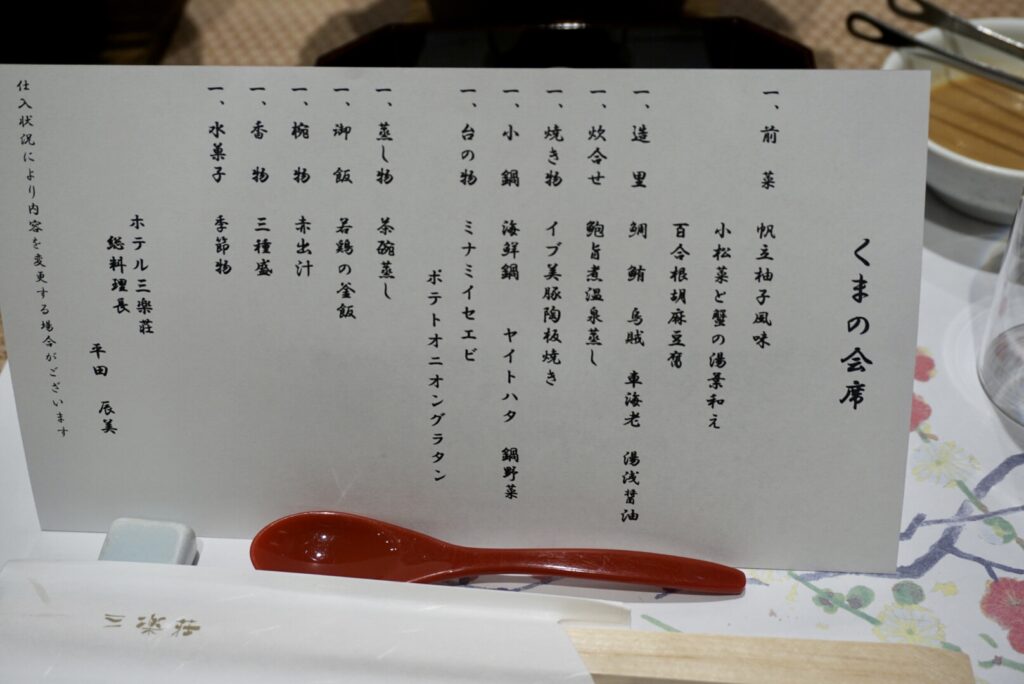 くまの会席
一、前菜 帆立柚子風味
小松菜と蟹の湯葉和え
百合根胡麻豆腐
一、造里 鯛 鮪 烏賊 車海老 湯浅醤油
一、炊合せ 鮑旨煮温泉蒸し
一、焼き物 イブ美豚陶板焼き
一、小鍋 海鮮鍋 ヤイトハタ 鍋野菜
一、台の物 ミナミイセエビ
ポテトオニオングラタン
一、蒸し物 茶碗蒸し
一、御飯 若鶏の釜飯
一、椀物 赤出汁
一、香物 三種盛
一、水菓子 季節物
ホテル三楽荘
総料理長
平田 辰美
仕入状況により内容を変更する場合がございます
三楽荘